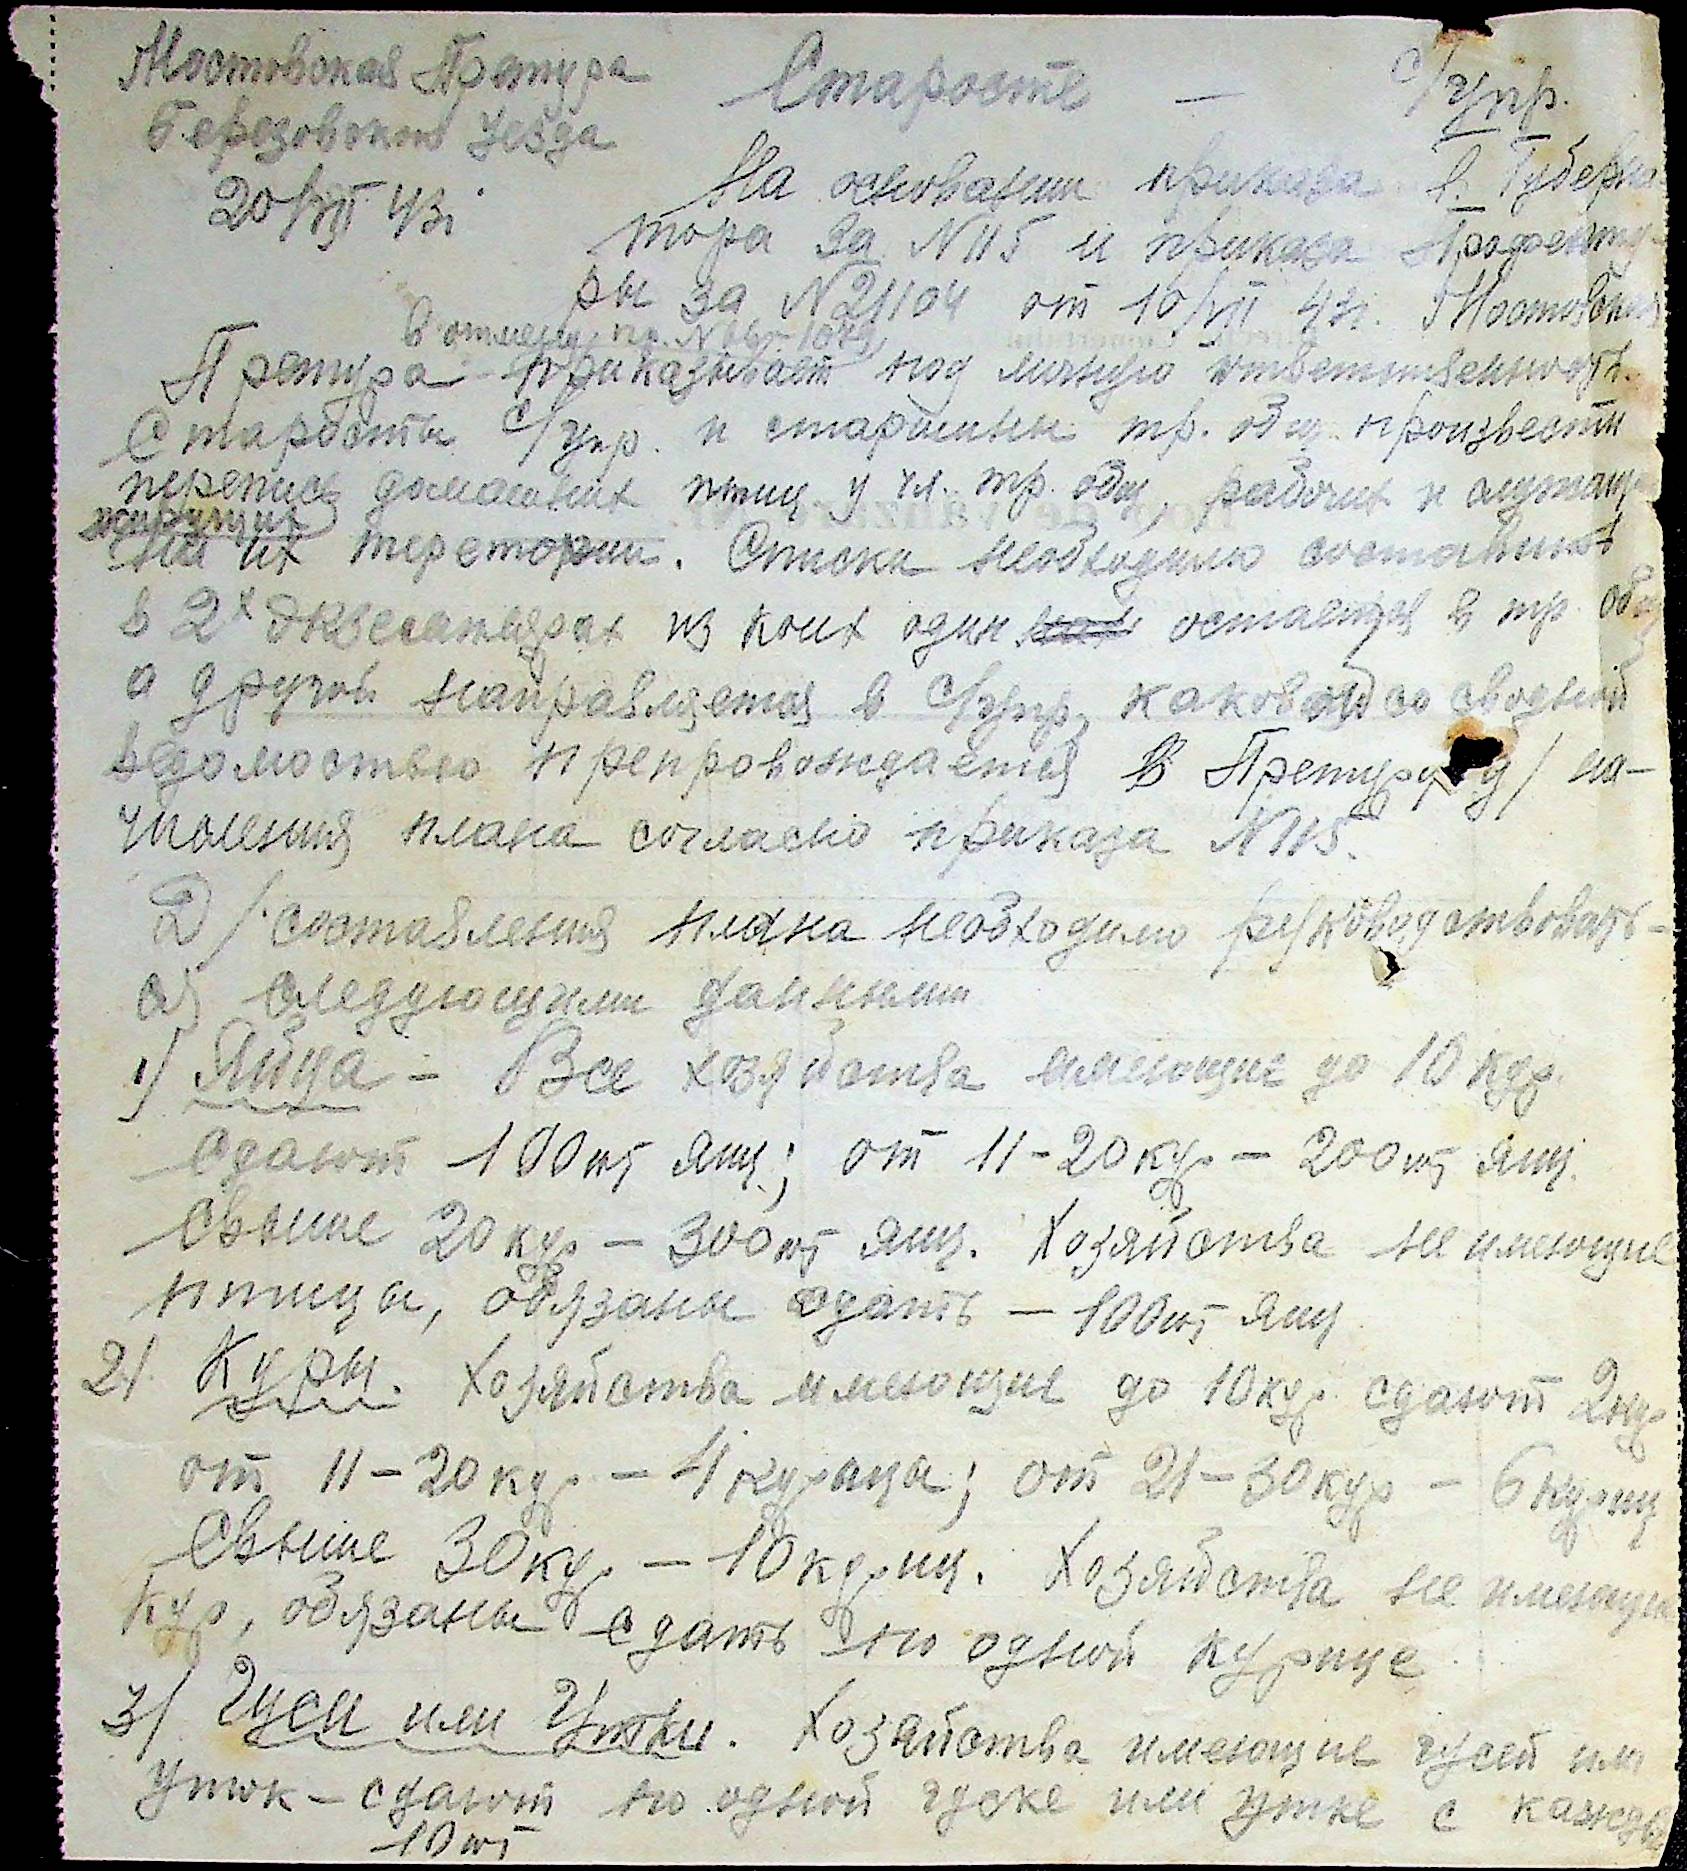 Мостовская Претура
Березовского Уезда
20/VII 43г
Старосте — с/упр.
На основании приказа г. Губерна
тора за N 115 и приказа Префекту-
ры за N 21104 от 10/VII 43г. Мостовская
в отмену пр. N
Претура приказывает под личную ответственность
Старосты с/упр. и старшины тр. общ. произвести
перепись домашних птиц у чл. тр. общ, рабочих и служащ
на их теретории. Списки необходимо составить
в 2х экземплярах из коих один остается в тр. общ
а другой направляется в с/упр, каковой со сводной
ведомостью препровождается в Претуру д/ на-
числения плана согласно приказа N 115.
Д/ составления плана необходимо руководствовать-
ся следующими данными
1/ Яйца – Все хозяйства имеющие до 10 кур.
сдают 100шт яиц; от 11-20 кур – 200шт яиц.
Свыше 20 кур – 300шт яиц. Хозяйства не имеющие
птицы, обязаны сдать – 100шт яиц
2/. Куры. Хозяйства имеющие до 10 кур сдают 2кур
от 11-20 кур – 4 курица; от 21-30 кур – 6 куриц
Свыше 30 кур – 10 куриц. Хозяйства не имеющи
кур, обязаны сдать по одной курице
3/ Гуси или Утки. Хозяйства имеющие гусей или
уток – сдают по одной гуске или утке с кажды
10 шт